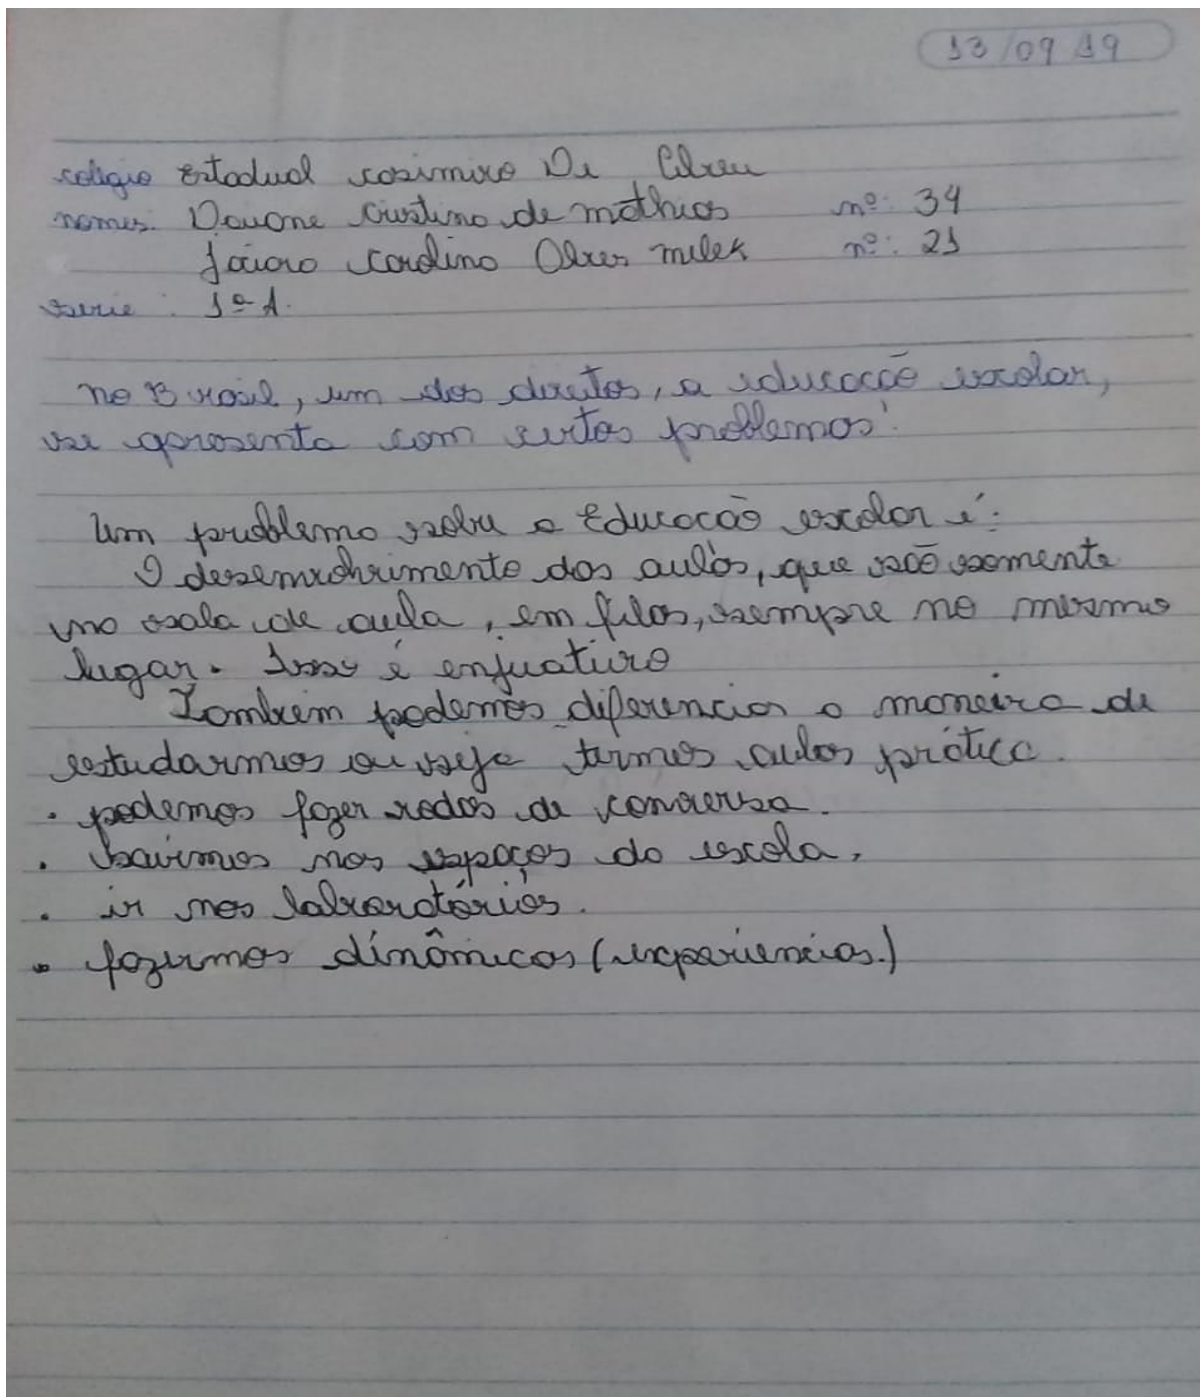 13/09/19
colégio Estadual casimiro De Abreu
nomes: Cristina de mathias nº: 34
Carolina Alves milek nº: 21
serie: 1ª A.
no Brasil, um dos direitos, a educação escolar,
se apresenta com certos problemas!
Um problema sobre a Educação escolar é:
O desenvolvimento das aulas, que são somente
na sala de aula, em filas, sempre no mesmo
lugar. Isso é enjuativo
Também podemos diferencias a maneira de
estudarmos ou seja termos aulas prática.
• podemos fazer rodas de conversa.
• sairmos nos espaços da escola.
• ir nos laboratórios.
• fazermos dinâmicas (experiencias.)